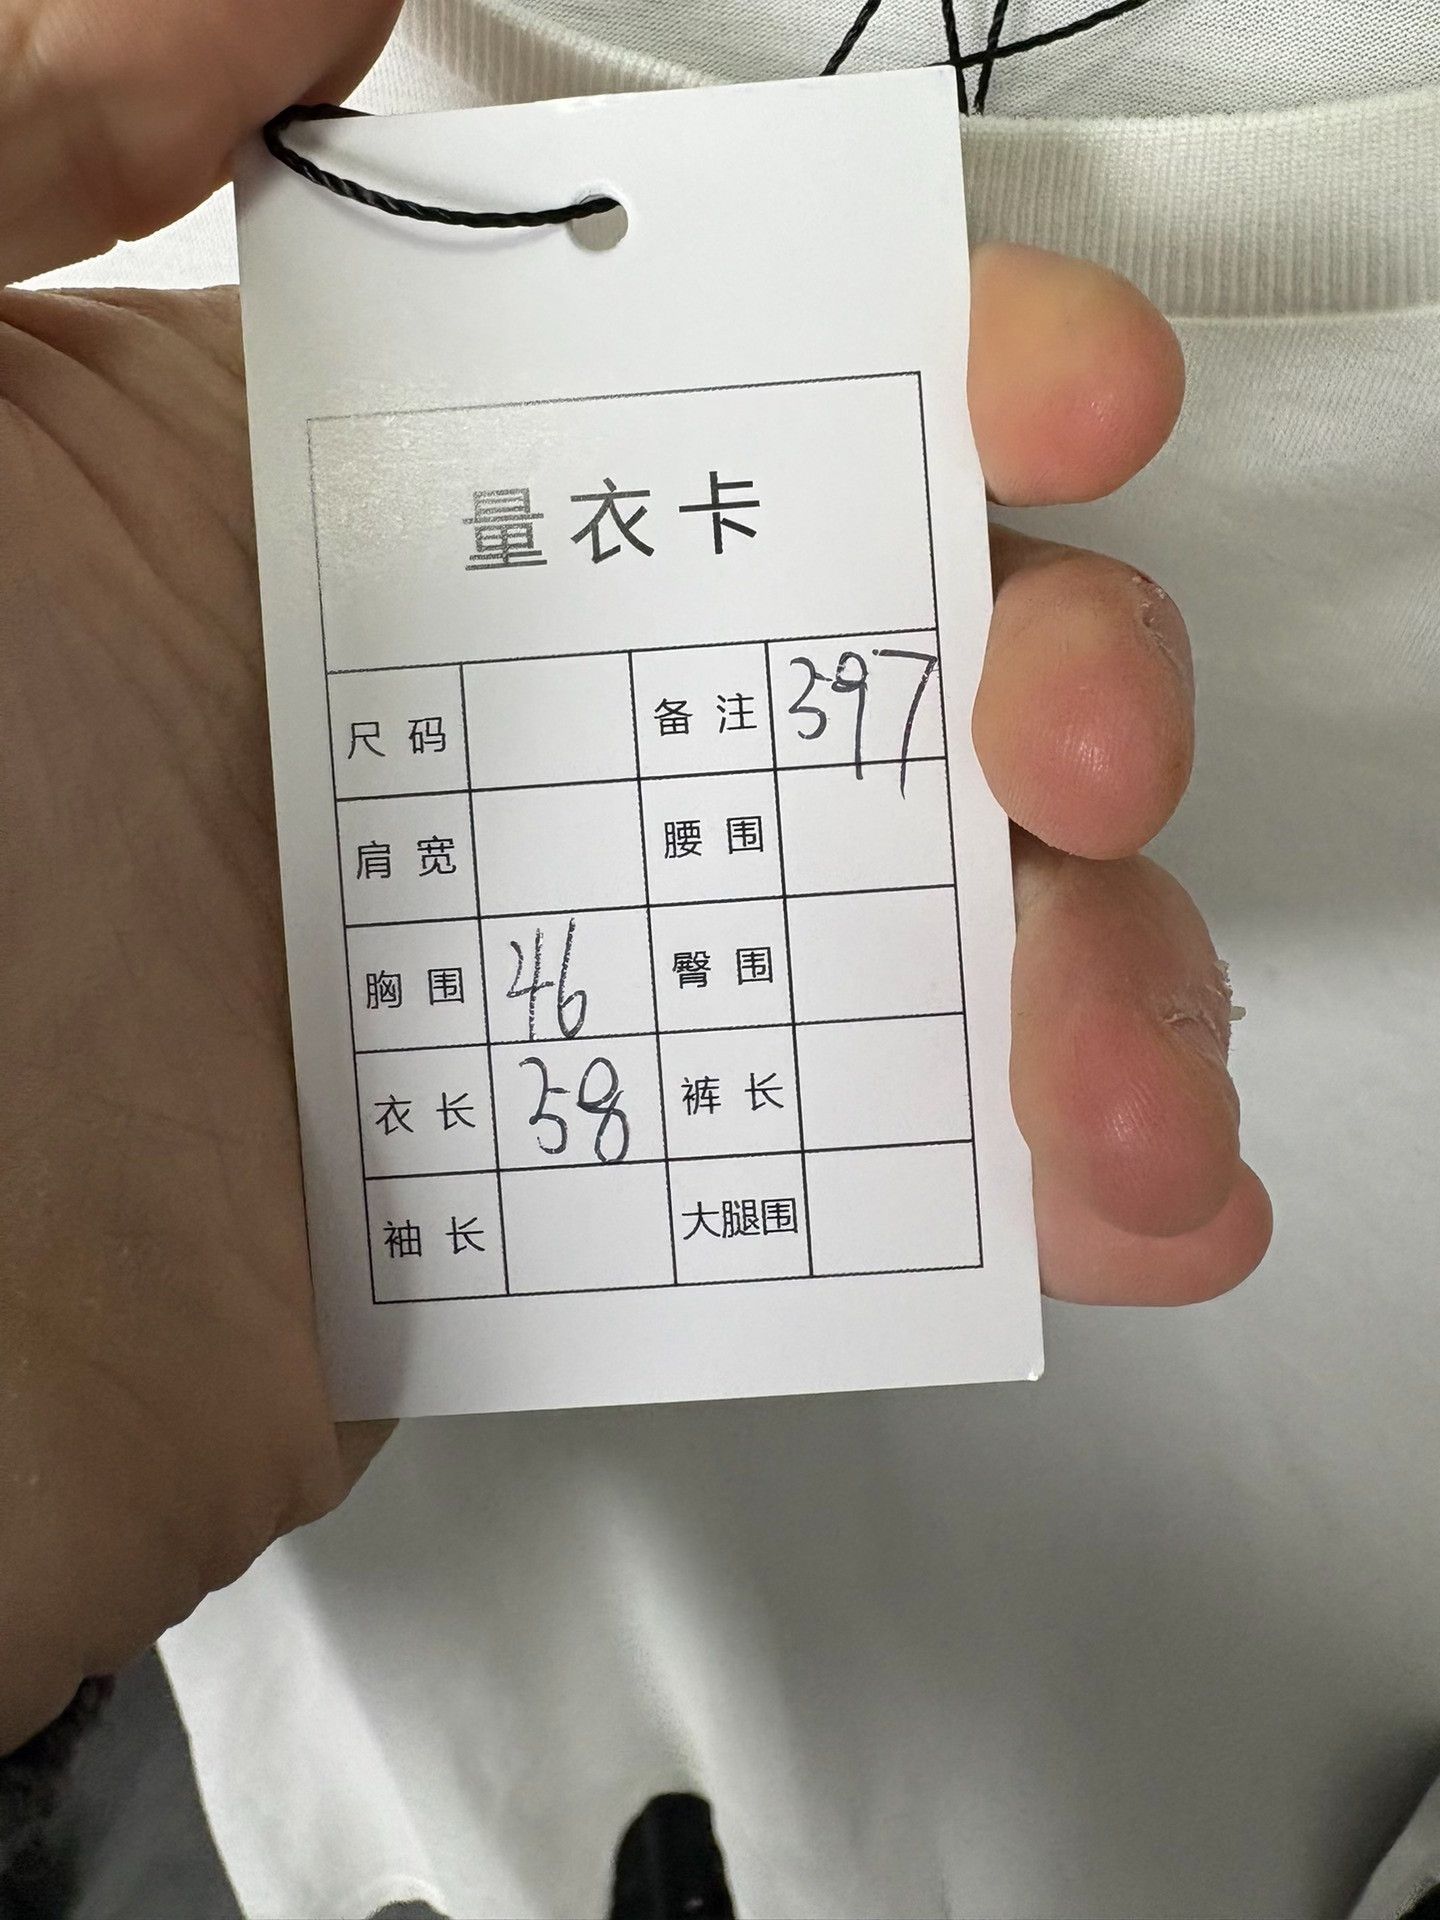 量衣卡
尺码 备注 397
肩宽 腰围
胸围 46 臀围
衣长 38 裤长
袖长 大腿围